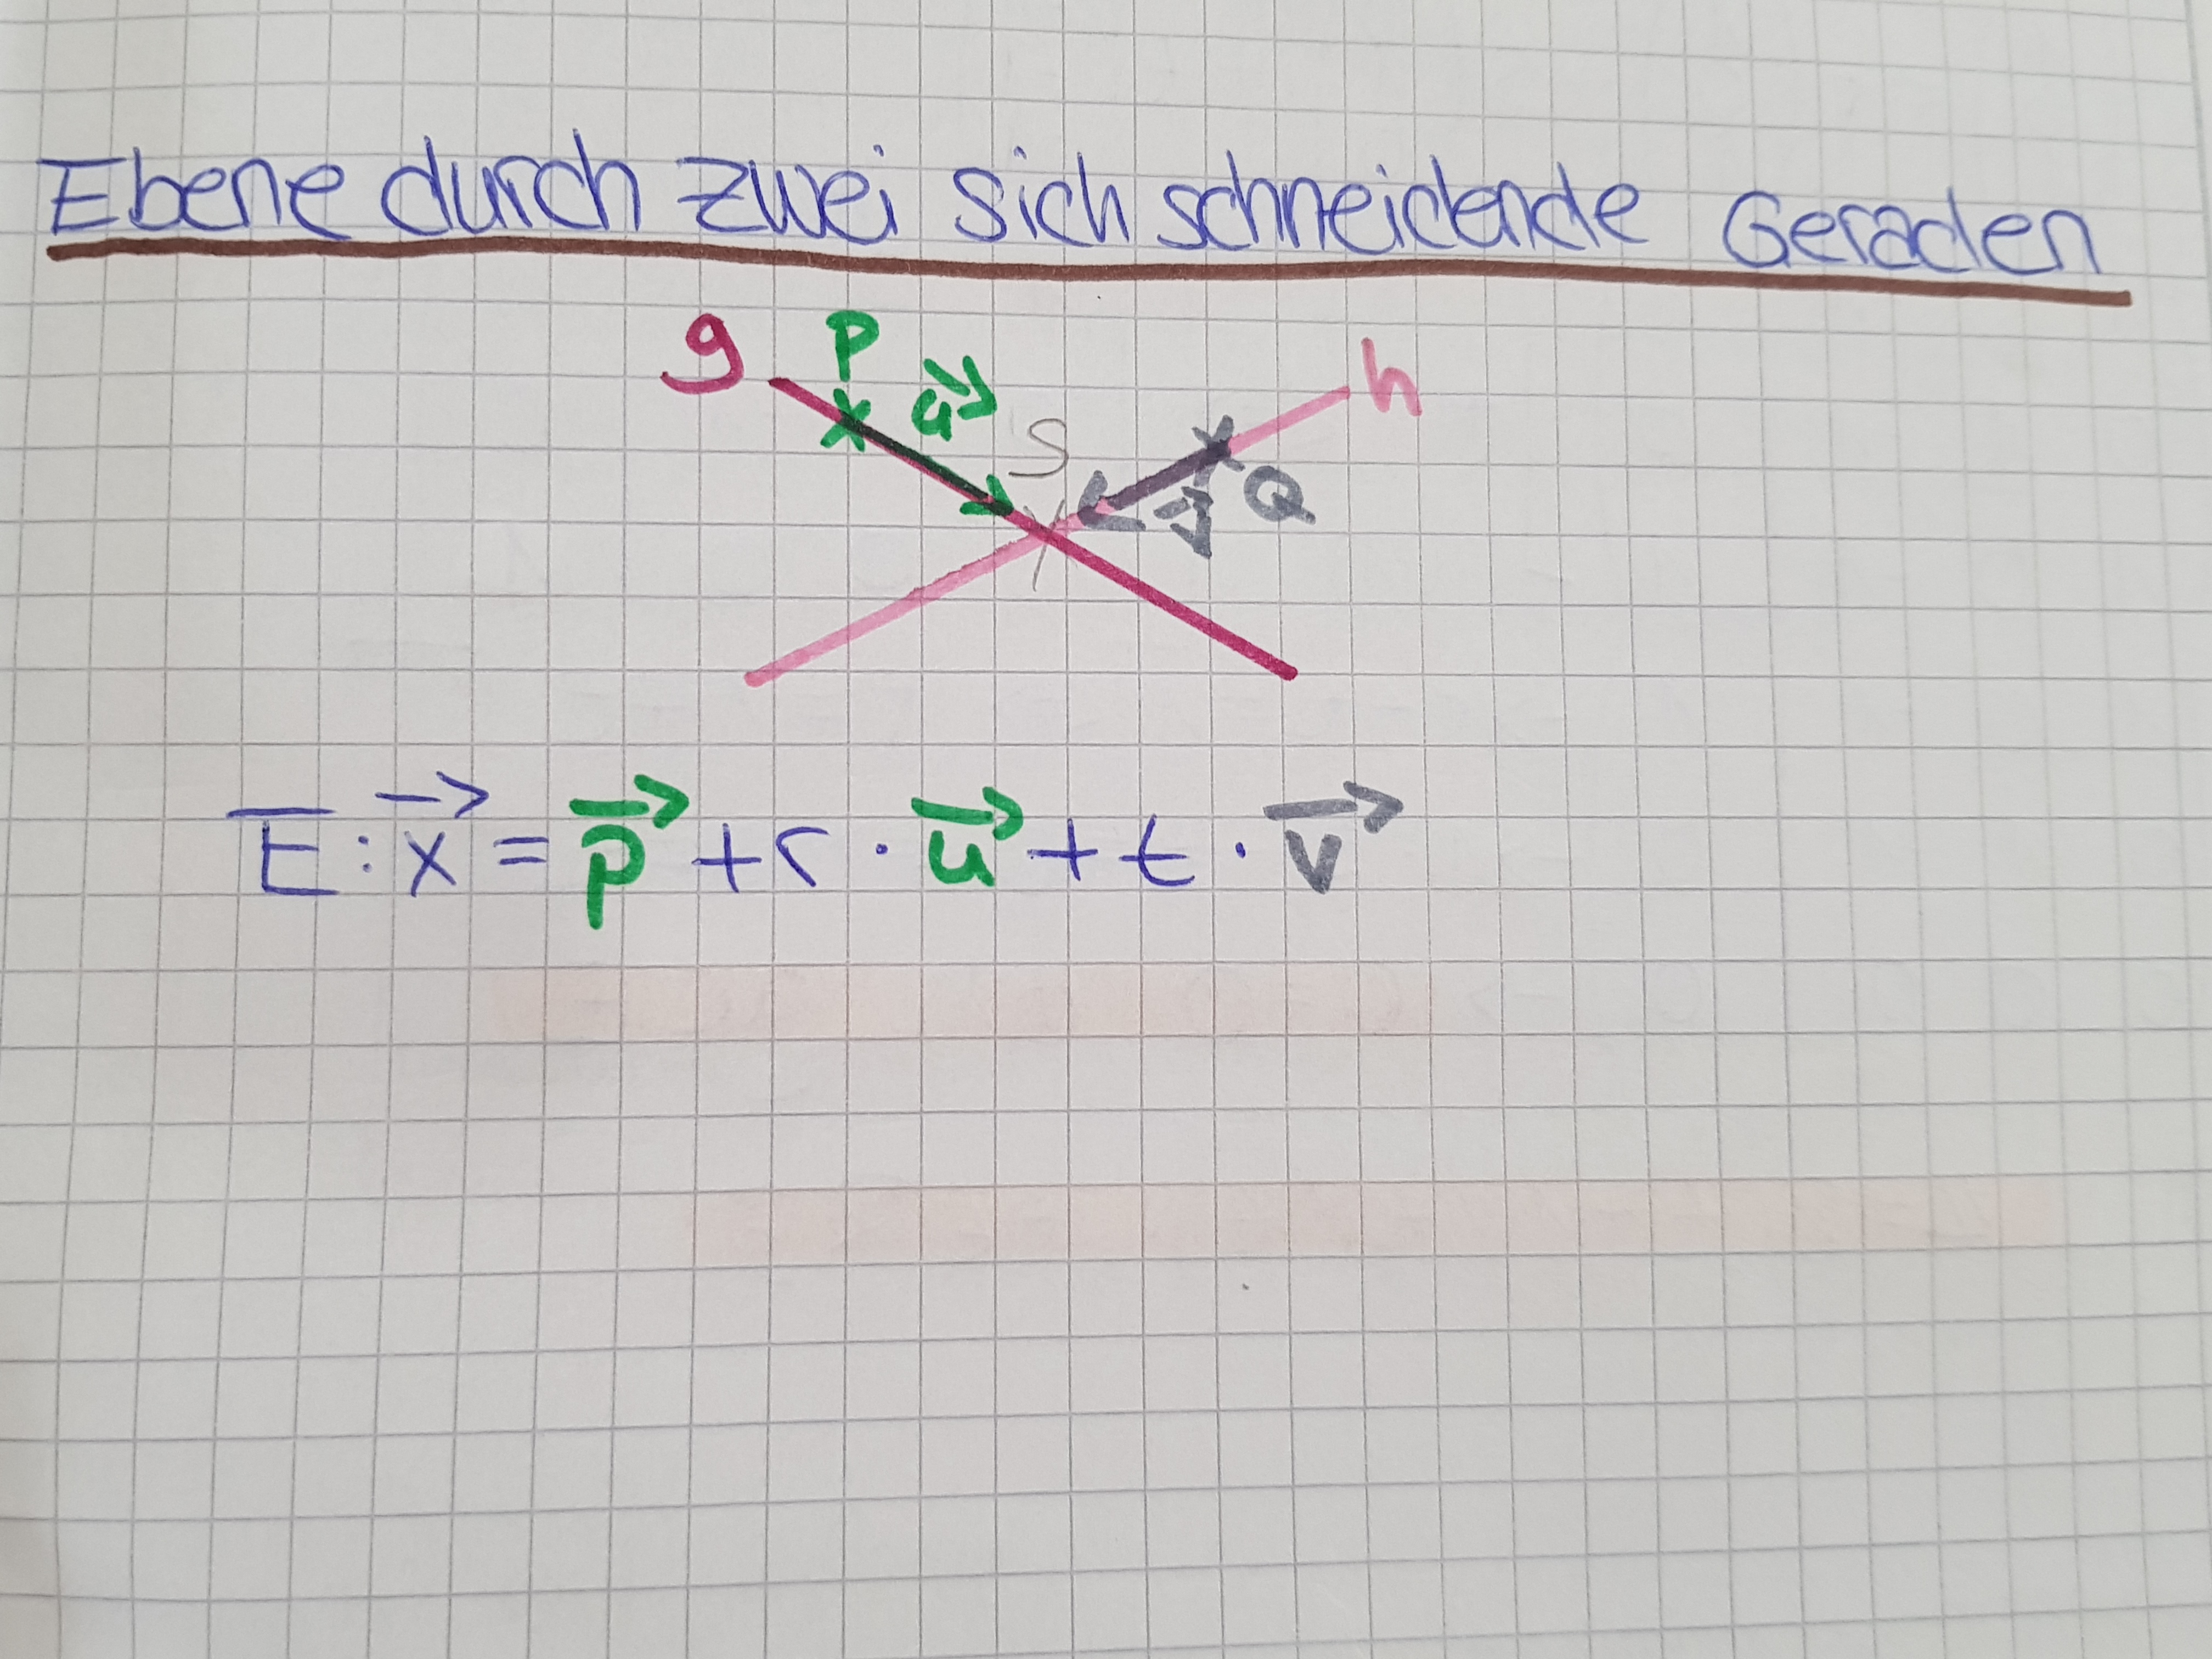 Ebene durch zwei sich schneidende Geraden
g P u⃗ S h
v⃗ Q
E: x⃗ = p⃗ + r · u⃗ + t · v⃗